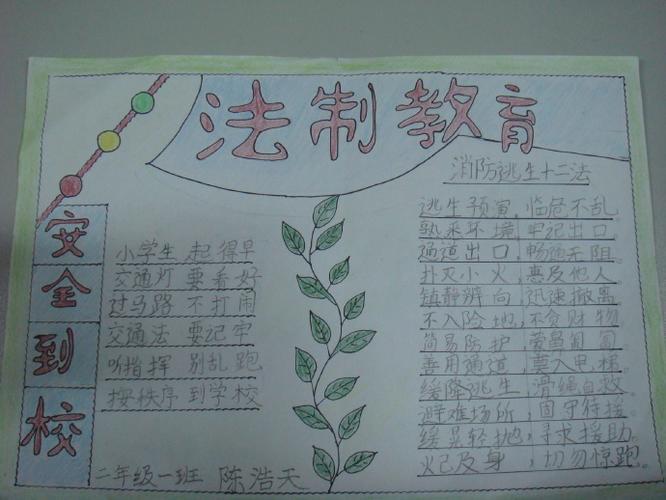 法制教育
安全到校
小学生 起得早
交通灯 要看好
过马路 不打闹
交通法 要记牢
听指挥 别乱跑
按秩序 到学校
二年级一班 陈浩天
消防逃生十二法
逃生预演,临危不乱
熟悉环境,牢记出口
通道出口,畅通无阻
扑灭小火,惠及他人
镇静辨向,迅速撤离
不入险地,不贪财物
简易防护,匍匐
善用通道,莫入电梯
缓降逃生,滑绳自救
避难场所,固守待援
缓晃轻抛,寻求援助
火已及身,切勿惊跑